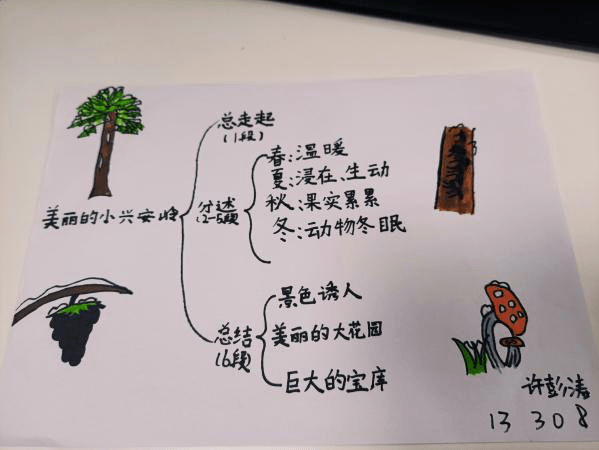 总走起
(1段)
美丽的小兴安岭
分述
(2-5段)
春:温暖
夏:浸在、生动
秋:果实累累
冬:动物冬眠
总结
(6段)
景色诱人
美丽的大花园
巨大的宝库
许彭涛
13 308